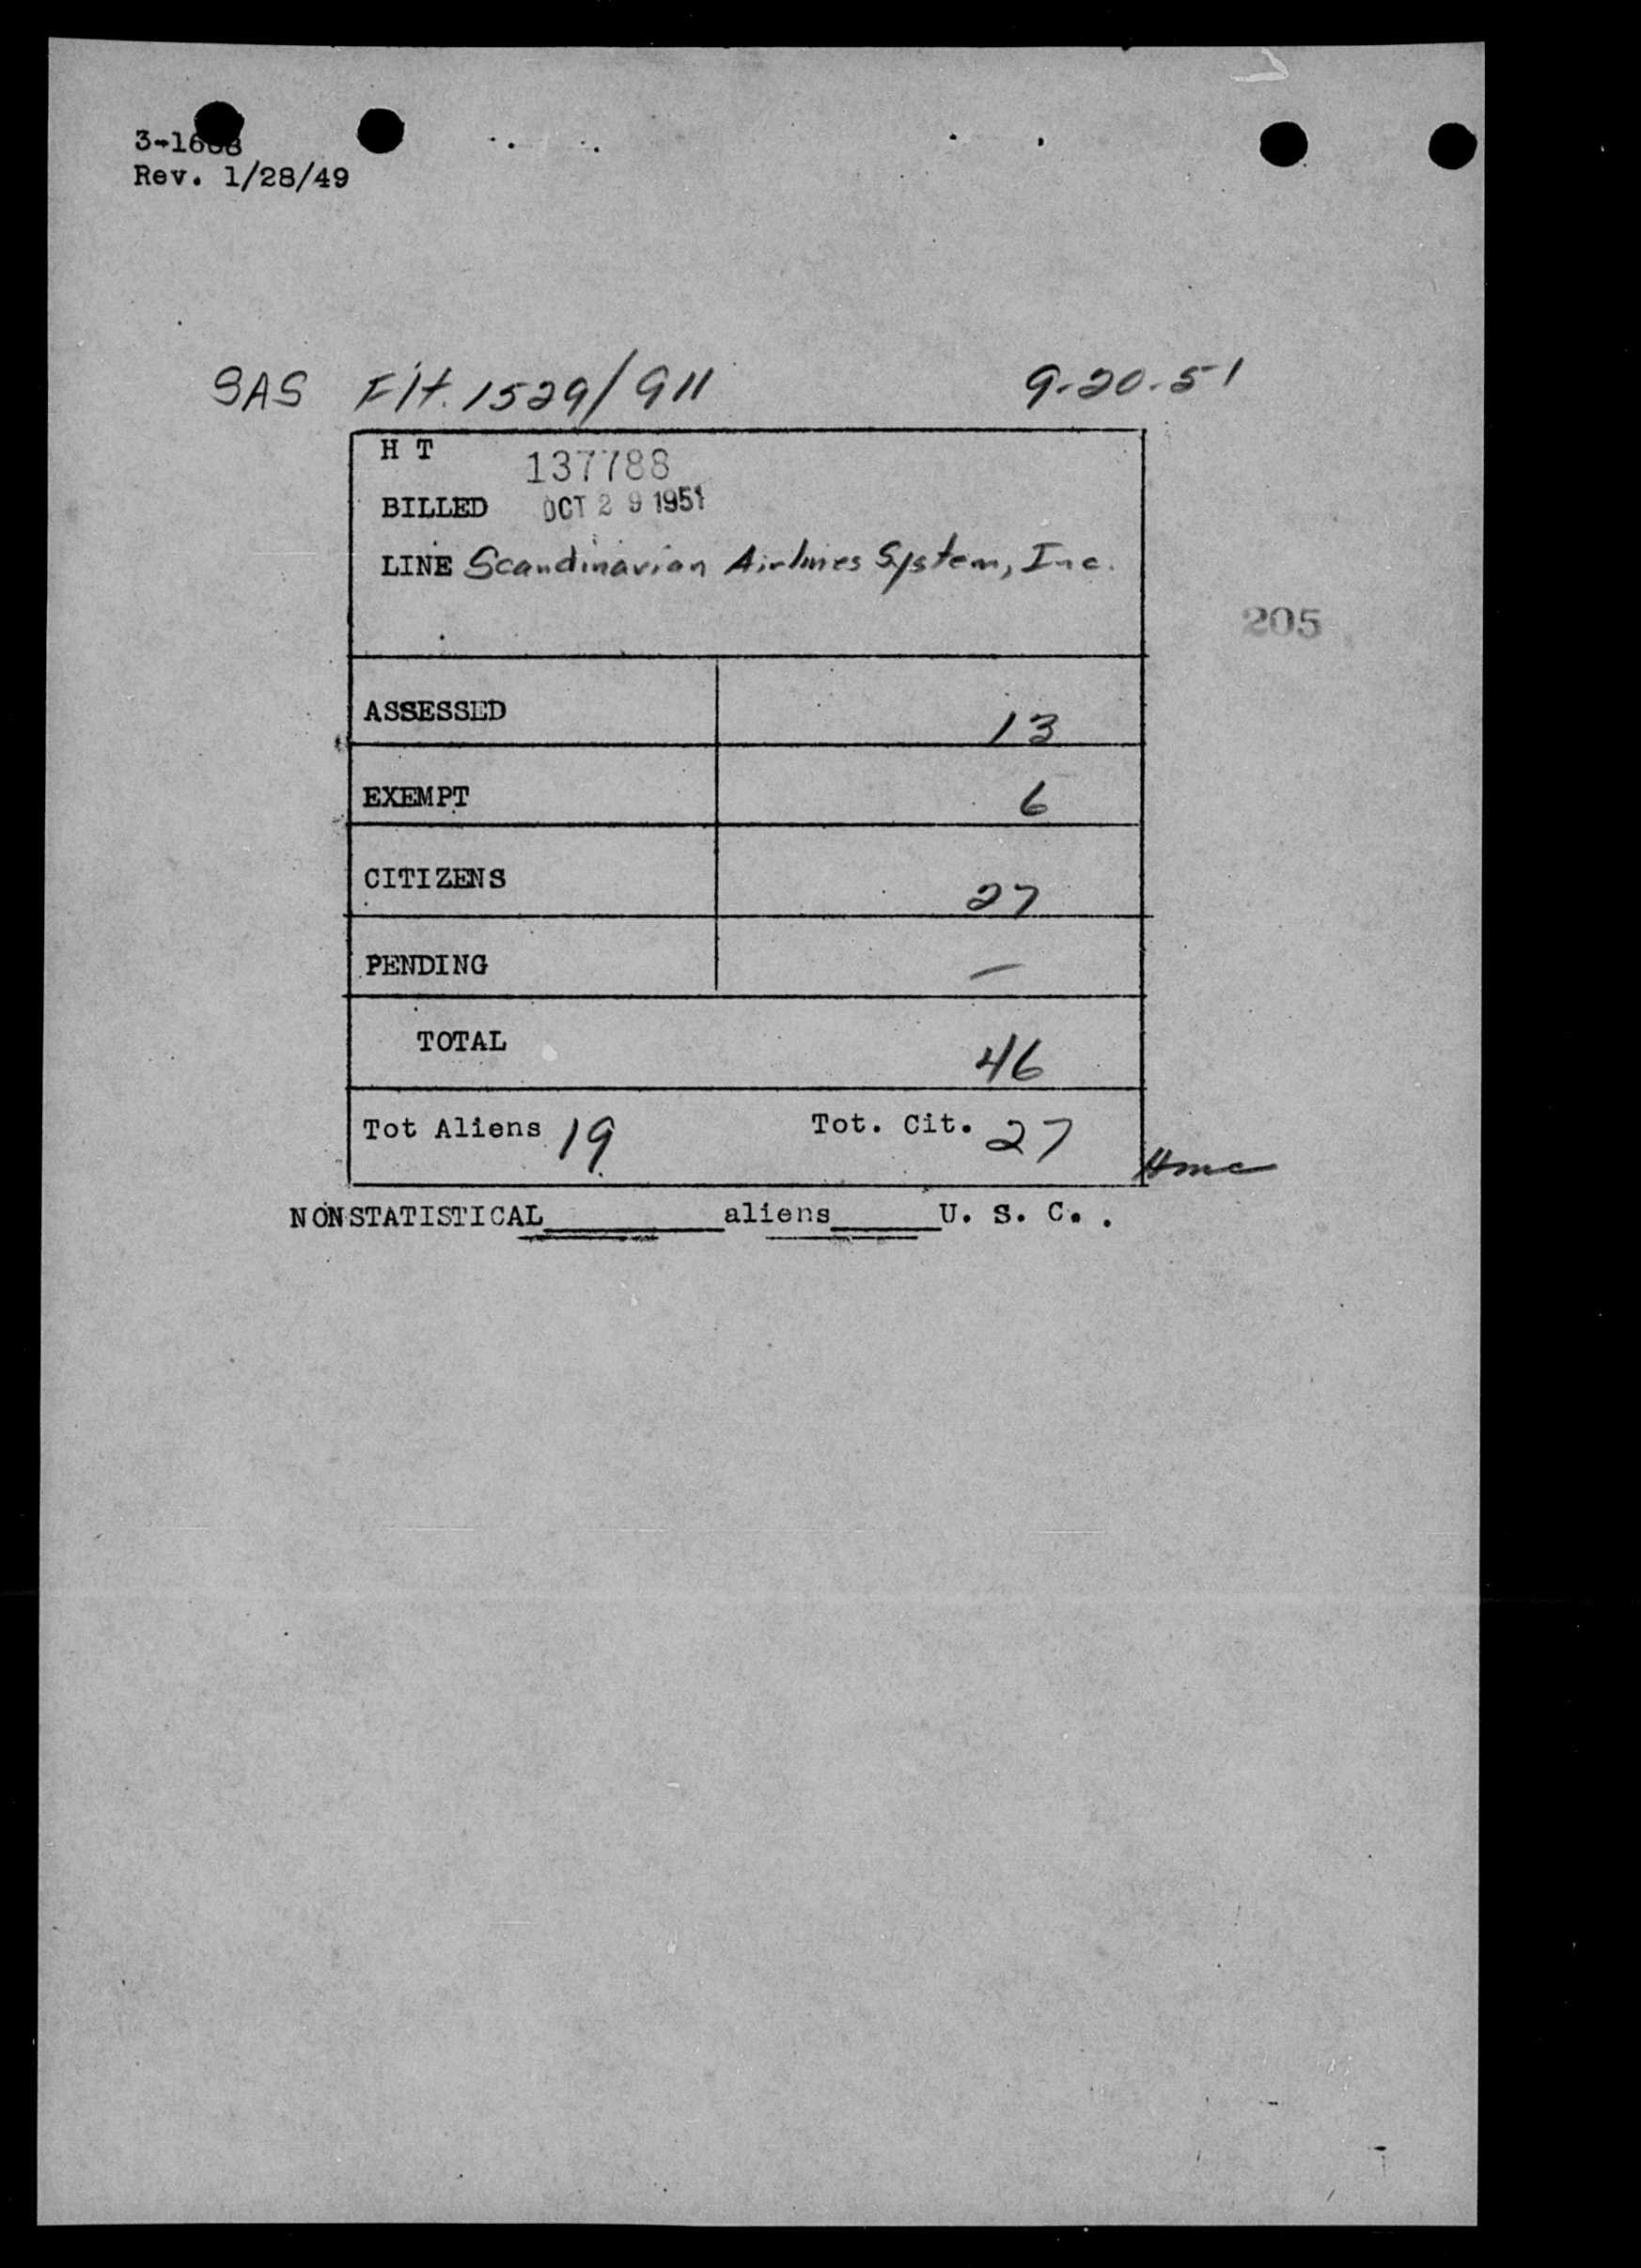 Rev. 1/28/49
SAS Flt. 1529/911 9-20-51
H T 137788
BILLED OCT 29 1951
LINE Scandinavian Airlines System, Inc.
205
ASSESSED 13
EXEMPT 6
CITIZENS 27
PENDING —
TOTAL 46
Tot Aliens 19 Tot. Cit. 27
NONSTATISTICAL________aliens_____U. S. C. .